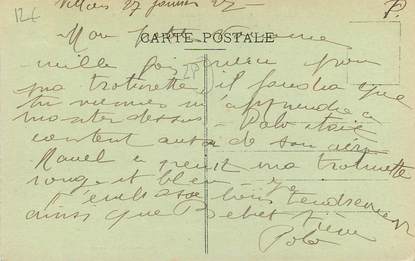 12€
Villars 27 janvier 22
P.
Mon petit
CARTE POSTALE
mille fois merci pour
ma trotinette il faudra que
tu viennes m'apprendre à
monter dessus Polo était
content aussi de son
Manel a peint ma trotinette
rouge et bleu
t'embrasse bien tendrement
ainsi que Bebet
Polo